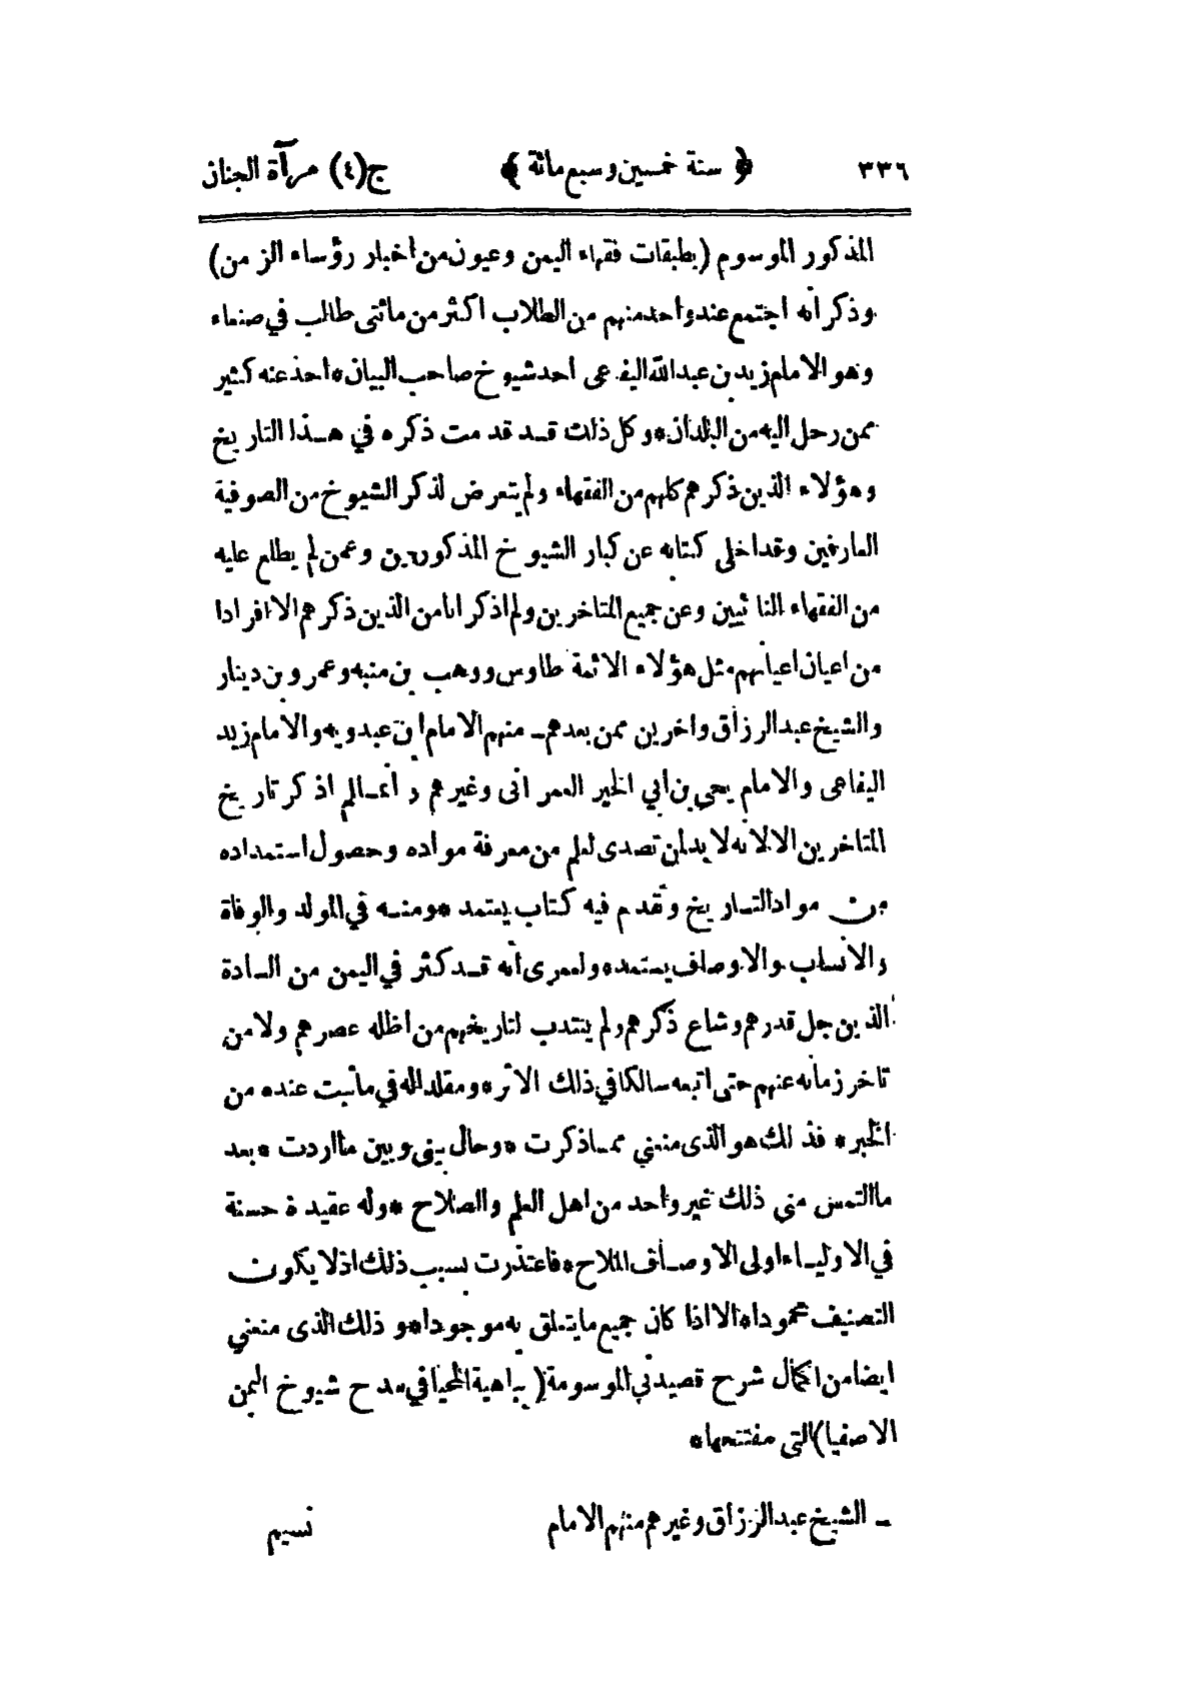 ٣٣٦ ﴿ سنة خمسين وسبع مائة ﴾ ج(٤) مرآة الجنان
المذكور الموسوم (بطبقات فقهاء اليمن وعيون من اخبار رؤساء الزمن)
وذكر انه اجتمع عند واحد منهم من الطلاب اكثر من مائتى طالب في صنعاء
وهو الامام زيد بن عبدالله اليفاعى احد شيوخ صاحب البيان * اخذ عنه كثير
ممن رحل اليه من البلدان * وكل ذلك قد قدمت ذكره في هذا التاريخ
وهؤلاء الذين ذكرهم كلهم من الفقهاء ولم يتعرض لذكر الشيوخ من الصوفية
العارفين وقد اخلى كتابه عن كبار الشيوخ المذكورين وعمن لم يطلع عليه
من الفقهاء النائبين وعن جميع المتاخرين ولم اذكر انا من الذين ذكرهم الا افرادا
من اعيان اعيانهم مثل هؤلاء الائمة طاوس ووهب بن منبه وعمرو بن دينار
والشيخ عبدالرزاق واخرين ممن بعدهم ـ منهم الامام ابن عبدويه والامام زيد
اليفاعى والامام يحيى بن ابي الخير العمرانى وغيرهم وانما لم اذكر تاريخ
المتاخرين الا لانه لا بد لمن تصدى لعلم من معرفة مواده وحصول استمداده
من مواد التاريخ وتقدم فيه كتاب يعتمد * ومنه في المولد والوفاة
والانساب والاوصاف يستمد * ولعمرى انه قد كثر في اليمن من السادة
الذين جل قدرهم وشاع ذكرهم ولم ينتدب لتاريخهم من اظله عصرهم ولا من
تاخر زمانه عنهم حتى اتبعه سالكا في ذلك الاثر * ومقلدا له في ما ثبت عنده من
الخبر * فذلك هو الذى منعني مما ذكرت * وحال بينى وبين ما اردت * بعد
ما التمس مني ذلك غير واحد من اهل العلم والصلاح * وله عقيدة حسنة
في الاولياء اولى الاوصاف الملاح * فاعتذرت بسبب ذلك اذ لا يكون
التصنيف محمودا * الا اذا كان جميع ما يتعلق به موجودا * وذلك الذى منعني
ايضا من اكمال شرح قصيدتي الموسومة (بباهية المحيا في مدح شيوخ اليمن
الاصفيا) التى مفتتحها *
ـ الشيخ عبدالرزاق وغيرهم منهم الامام نسيم